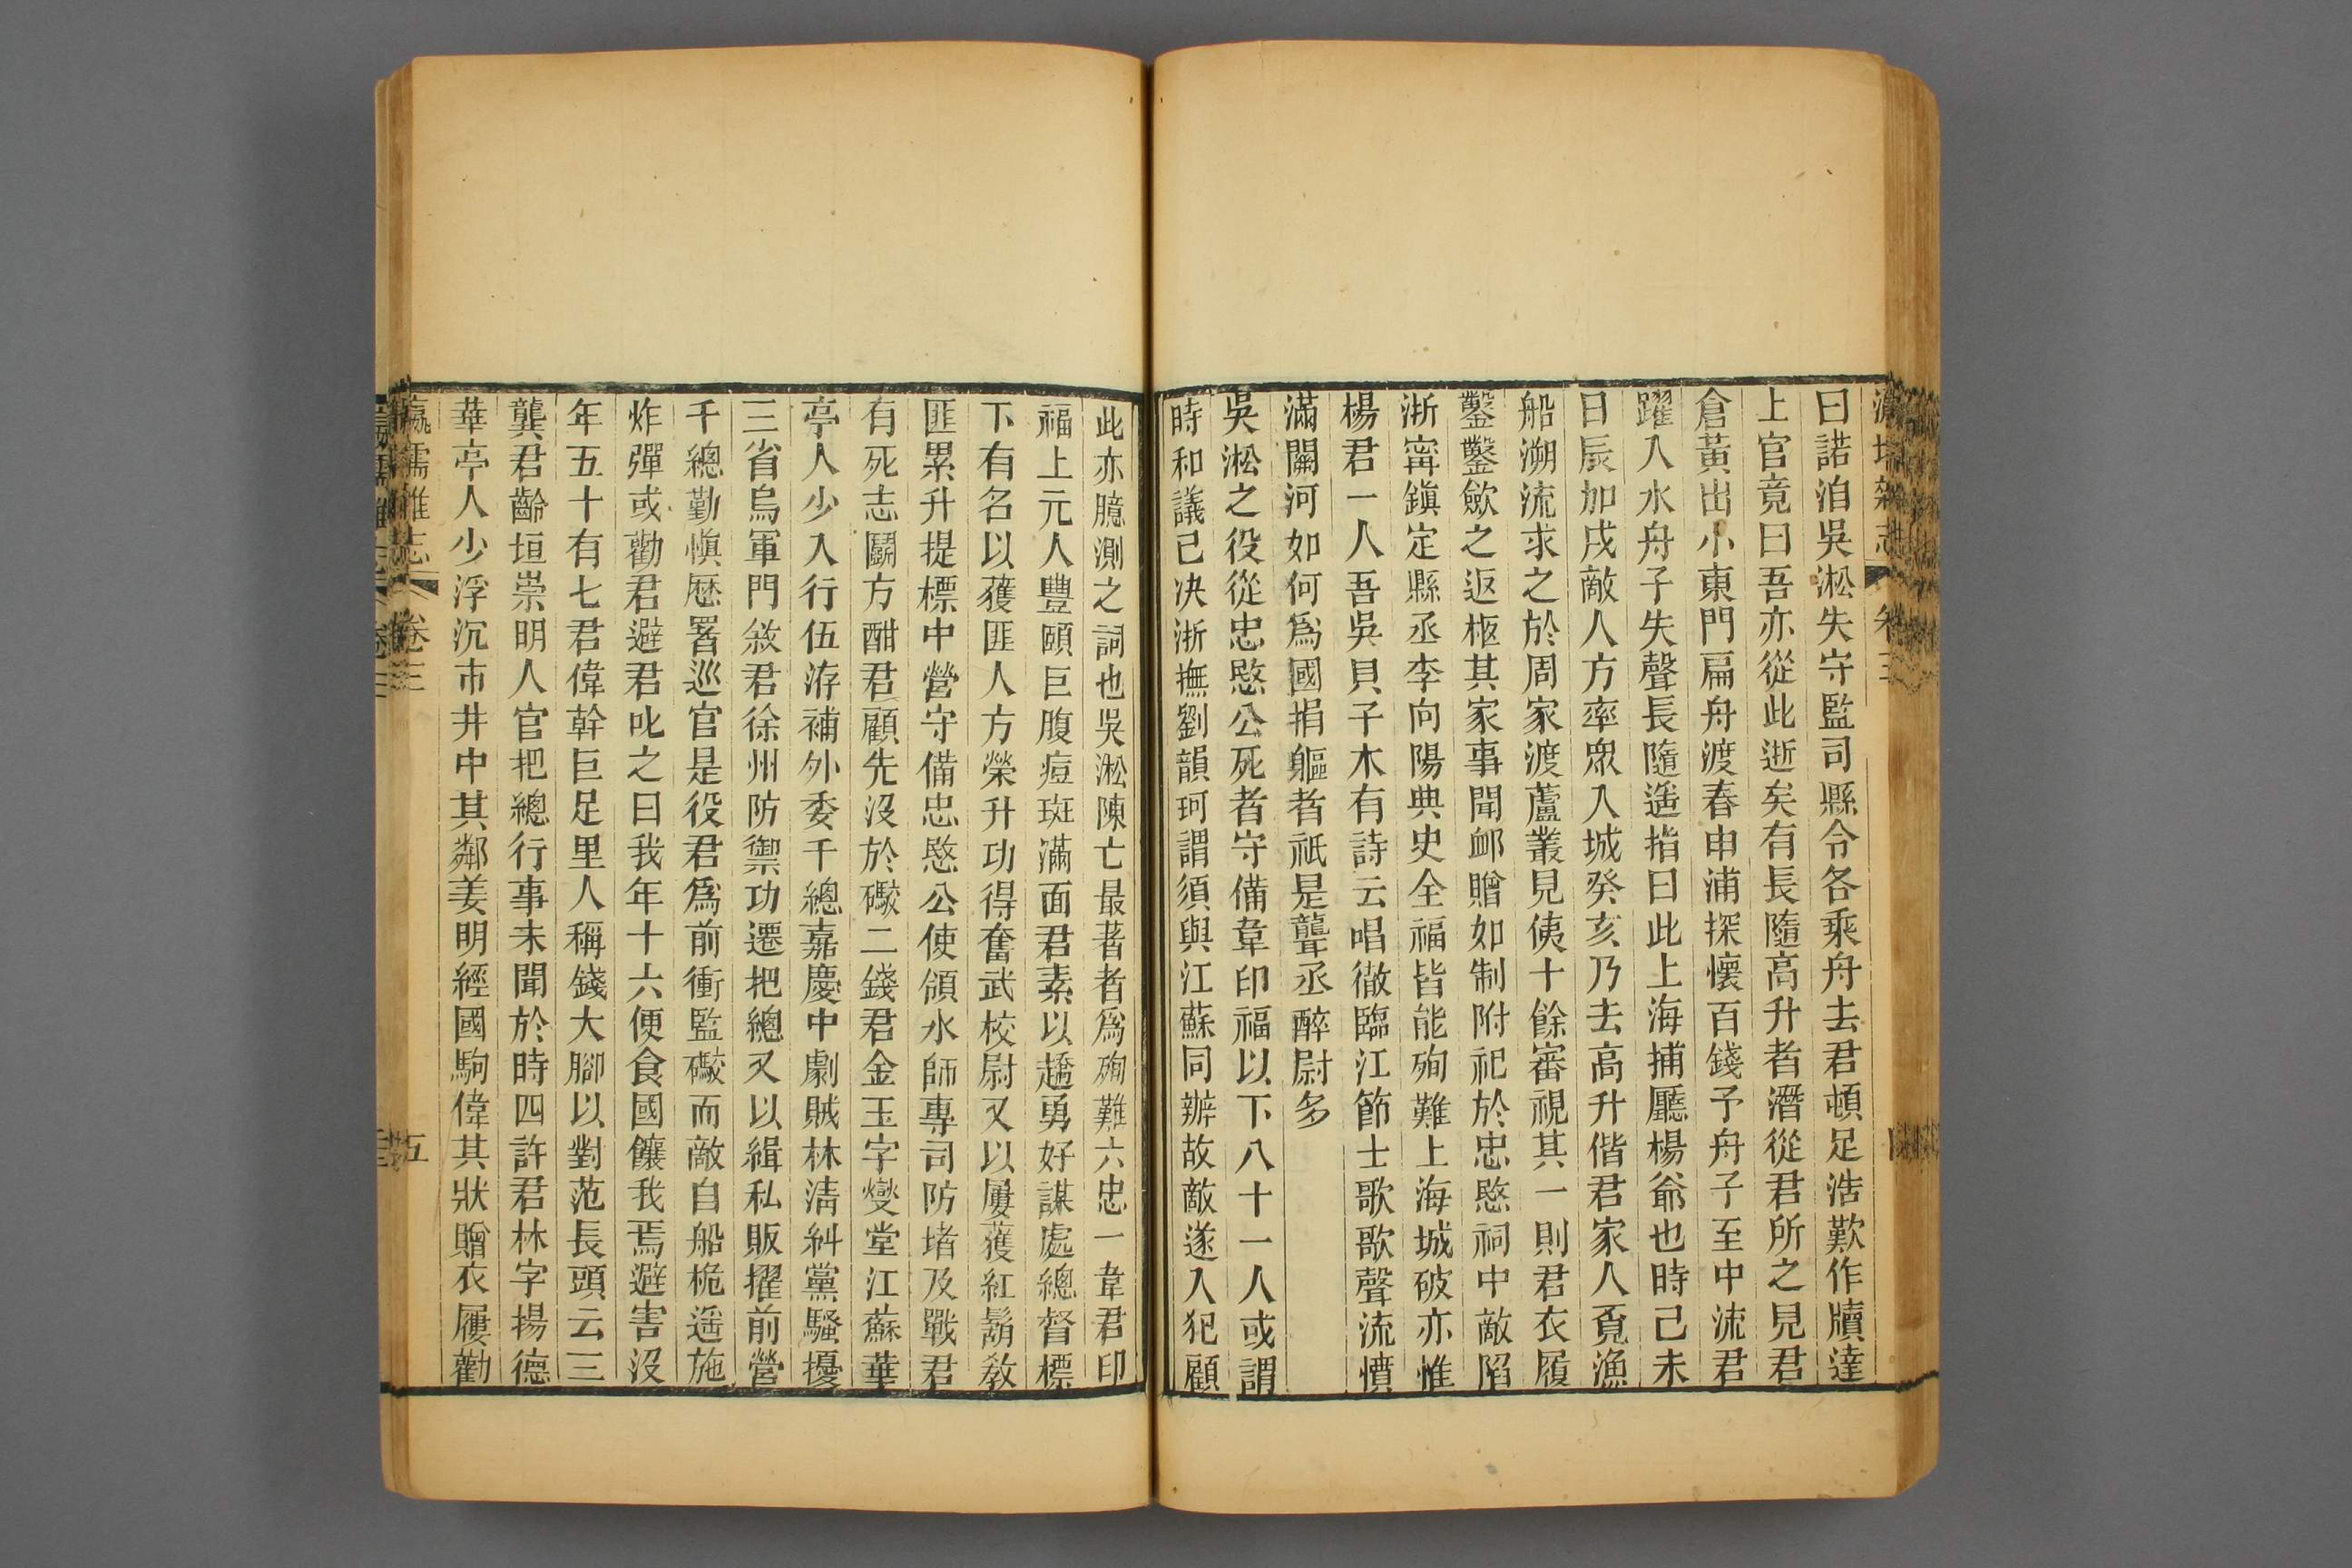 曰諾洎吳淞失守監司縣令各乘舟去君頓足浩歎作牘達
上官竟曰吾亦從此逝矣有長隨高升者潛從君所之見君
倉黃出小東門扁舟渡春申浦探懷百錢予舟子至中流君
躍入水舟子失聲長隨遥指曰此上海捕廳楊爺也時己未
日辰加戌敵人方率眾入城癸亥乃去高升偕君家人覔漁
船溯流求之於周家渡蘆叢見侇十餘審視其一則君衣履
鑿鑿歛之返柩其家事聞䘏贈如制附祀於忠愍祠中敵陷
浙甯鎭定縣丞李向陽典史全福皆能殉難上海城破亦惟
楊君一人吾吳貝子木有詩云唱徹臨江節士歌歌聲流憤
滿關河如何爲國捐軀者祇是聾丞醉尉多
吳淞之役從忠愍公死者守備韋印福以下八十一人或謂
時和議已決浙撫劉韻珂謂須與江蘇同辦故敵遂入犯顧
此亦臆測之詞也吳淞陳亡最著者爲殉難六忠一韋君印
福上元人豐頤巨腹痘斑滿面君素以趫勇好謀處總督標
下有名以獲匪人方榮升功得奮武校尉又以屢獲紅鬍敎
匪累升提標中營守備忠愍公使領水師專司防堵及戰君
有死志鬭方酣君顧先沒於礮二錢君金玉字燮堂江蘇華
亭人少入行伍洊補外委千總嘉慶中劇賊林淸糾黨騷擾
三省烏軍門敘君徐州防禦功遷把總又以緝私販擢前營
千總勤愼歷署巡官是役君爲前衝監礮而敵自船桅遥施
炸彈或勸君避君叱之曰我年十六便食國饟我焉避害沒
年五十有七君偉幹巨足里人稱錢大腳以對范長頭云三
龔君齡垣崇明人官把總行事未聞於時四許君林字揚德
華亭人少浮沉市井中其鄰姜明經國駒偉其狀贈衣屨勸
瀛壖雜志 卷三 五